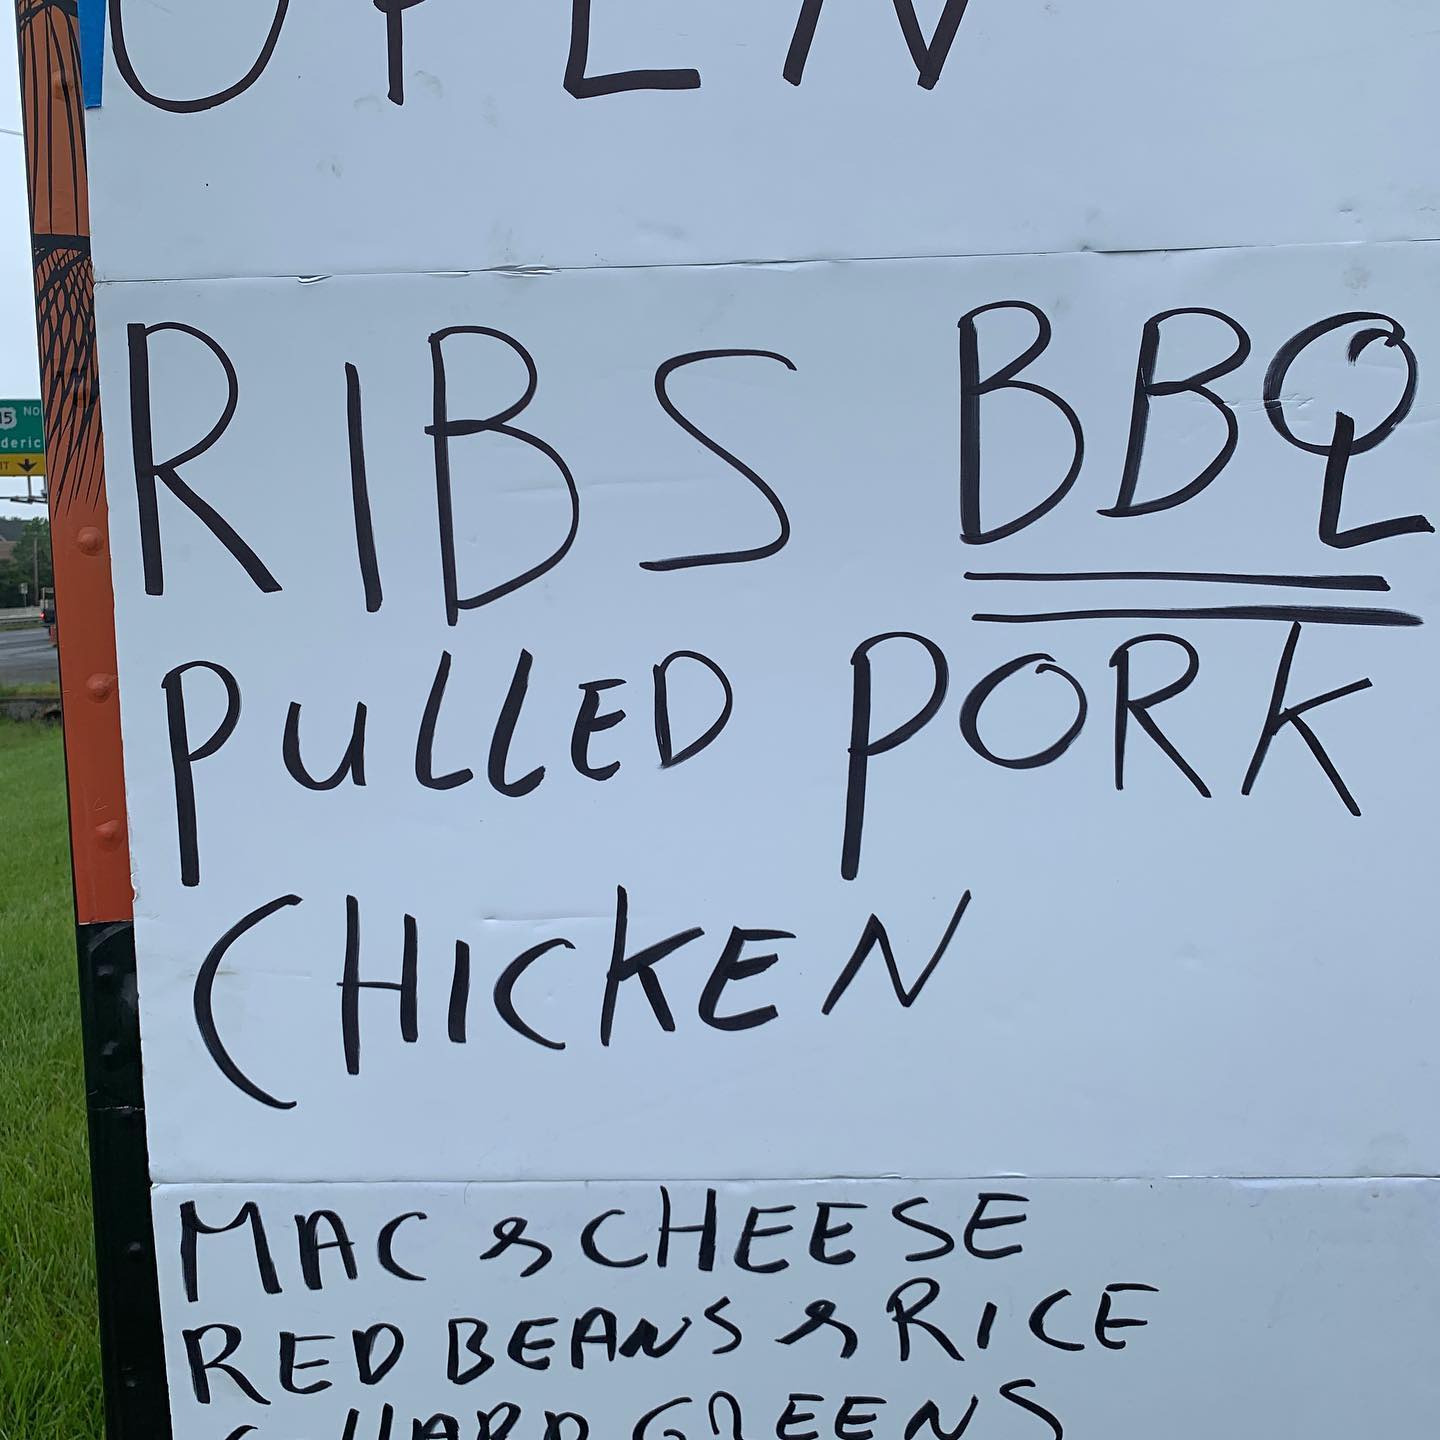 OPEN
RIBS BBQ
PULLED PORK
CHICKEN
MAC & CHEESE
RED BEANS & RICE
GREENS
15 NO
deric